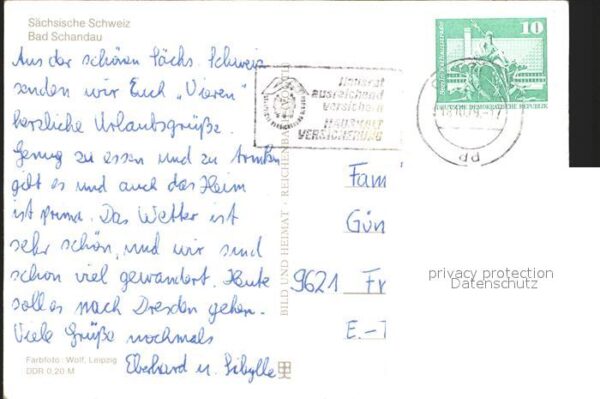 Sächsische Schweiz
Bad Schandau
Aus der schönen Sächs. Schweiz
senden wir Euch „Vieren"
herzliche Urlaubsgrüße.
Genug zu essen und zu trinken
gibt es und auch das Heim
ist prima. Das Wetter ist
sehr schön, und wir sind
schon viel gewandert. Heute
soll es nach Dresden gehen.
Viele Grüße nochmals
Eberhard u. Sibylle
Farbfoto: Wolf, Leipzig
DDR 0,20 M
BILD UND HEIMAT · REICHENBACH
Hausrat
ausreichend
versichern
HAUSHALT
VERSICHERUNG
10
DEUTSCHE DEMOKRATISCHE REPUBLIK
Fam
Gün
9621 Fr
E.-T
privacy protection
Datenschutz